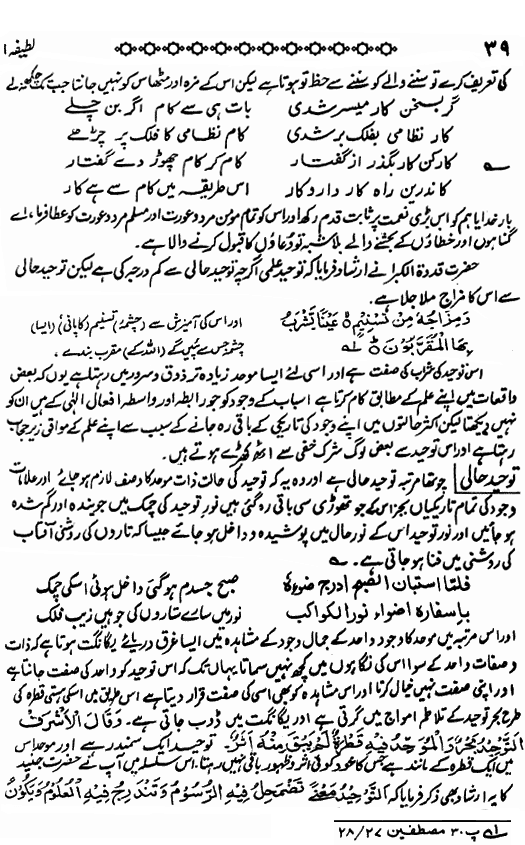 ۳۹ لطیفہ ۱
کی تعریف کرے تو سننے والے کو سننے سے حظ تو ہوتا ہے لیکن اس کے مزہ اور مٹھاس کو نہیں جانتا جب تک چکھ نہ لے
گر بسخن کار میسر شدی بات ہی سے کام اگر بن چلے
کار نظامی بفلک بر شدی کام نظامی کا فلک پر چڑھے
کار کن کار بگذر از گفتار کام کر کام چھوڑ دے گفتار
کاندرین راہ کار دارد کار اس طریقہ میں کام سے ہے کار
بار خدایا ہم کو اس بڑی نعمت پر ثابت قدم رکھ اور اس کو تمام مؤمن مرد و عورت اور مسلم مرد و عورت کو عطا فرما، اے
گناہوں اور خطاؤں کے بخشنے والے بلاشبہ تو دعاؤں کا قبول کرنے والا ہے۔
حضرت قدوۃ الکبرا نے ارشاد فرمایا کہ توحید علمی اگرچہ توحید حالی سے کم درجہ کی ہے لیکن توحید حالی
سے اس کا مزاج ملا جلا ہے۔
وَمِزَاجُهٗ مِنْ تَسْنِيْمٍ ۝ عَيْنًا يَّشْرَبُ اور اس کی آمیزش ہے (چشمۂ) تسنیم (کا پانی) (ایسا)
بِهَا الْمُقَرَّبُوْنَ ۝ ؎۱ چشمہ جس سے پئیں گے (اللہ کے) مقرب بندے،
اس توحید کی شراب کی صفت ہے اور اسی لئے ایسا موحد زیادہ تر ذوق و سرور میں رہتا ہے یوں کہ بعض
واقعات میں اپنے علم کے مطابق کام کرتا ہے اسباب کے وجود کو جو رابطہ اور واسطہ افعال الٰہی کے ہیں ان کو
نہیں دیکھتا لیکن اکثر حالتوں میں اپنے وجود کی تاریکی کے باقی رہ جانے کے سبب سے اپنے علم کے موافق زیر حجاب
رہتا ہے اور اس توحید سے بعض لوگ شرک خفی سے اٹھ کھڑے ہوتے ہیں۔
توحید حالی چوتھا مرتبہ توحید حالی ہے اور وہ یہ کہ توحید کی حالت ذات موحد کا وصف لازم ہو جائے اور علامات
وجود کی تمام تاریکیاں بجز اس کے جو تھوڑی سی باقی رہ گئی ہیں نور توحید کی چمک میں جویندہ اور گم شدہ
ہو جائیں اور نور توحید اس کے نور حال میں پوشیدہ و داخل ہو جائے جیسا کہ تاروں کی روشنی آفتاب
کی روشنی میں فنا ہو جاتی ہے۔
فلمّا استبان الصّبح ادرج ضوءہ صبح جسدم ہو گئی داخل ہوئی اسکی چمک
باسفارہ اضواء نور الکواکب نور میں سارے ستاروں کی جو ہیں زیب فلک
اور اس مرتبہ میں موحد کا وجود واحد کے جمال وجود کے مشاہدہ میں ایسا غرق دریائے یگانگت ہوتا ہے کہ ذات
و صفات واحد کے سوا اس کی نگاہوں میں کچھ نہیں سماتا یہاں تک کہ اس توحید کو واحد کی صفت جانتا ہے
اور اپنی صفت نہیں خیال کرتا اور اس مشاہدہ کو بھی اسی کی صفت قرار دیتا ہے اس طریق میں اسکی ہستی قطرہ کی
طرح بحر توحید کے تلاطم امواج میں گرتی ہے اور یگانگت میں ڈوب جاتی ہے۔ وَقَالَ الْاَشْرَفُ
التَّوْحِيْدُ بَحْرٌ وَّالْمُوَحِّدُ فِيْهِ قَطْرَةٌ لَمْ يَبْقَ مِنْهُ اَثَرٌ توحید ایک سمندر ہے اور موحد اس
میں ایک قطرہ کے مانند ہے جس کا خود کوئی اثر و ظہور باقی نہیں رہتا، اس سلسلہ میں آپ نے حضرت جنید
کا یہ ارشاد بھی ذکر فرمایا کہ اَلتَّوْحِيْدُ مَعْنًى تَضْمَحِلُّ فِيْهِ الرُّسُوْمُ وَتَنْدَرِجُ فِيْهِ الْعُلُوْمُ وَيَكُوْنُ
؎۱ پ ۳۰ مصطفین ۲۷/۲۸